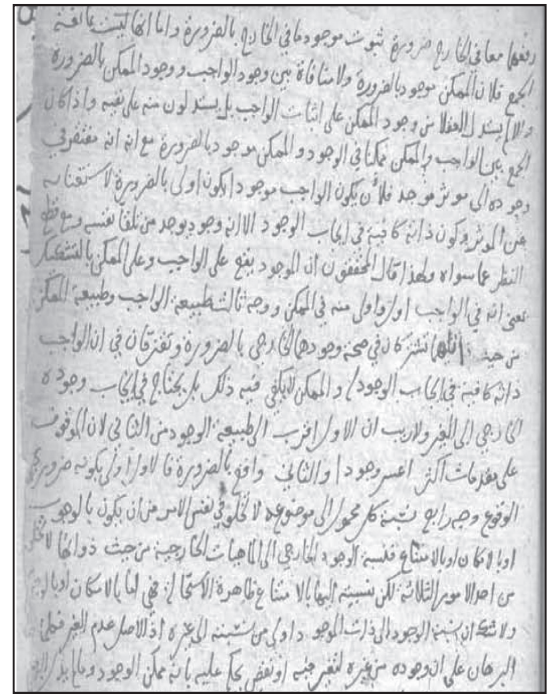 رفعها معا في الخارج ضرورة ثبوت موجود ما في الخارج بالضرورة واما انها ليست مانعة
الجمع فلان الممكن موجود بالضرورة ولا منافاة بين وجود الواجب و وجود الممكن بالضرورة
والا لم يستدل العقلا من وجود الممكن على اثبات الواجب بل يستدلون منه على نفيه واذا كان
الجمع بين الواجب والممكن ممكنا في الوجود و الممكن موجود بالضرورة مع انه مفتقر في
وجوده الى موثر موجد فلأن يكون الواجب موجودا يكون اولى بالضرورة لاستغنائه
عن الموثر وكون ذاته كافية في ايجاب الوجود لانه وجود يوجد من تلقا نفسه مع قطع
النظر عما سواه ولهذا قال المحققون ان الوجود يقع على الواجب وعلى الممكن بالتشكيك
بمعنى انه في الواجب اول واولى منه في الممكن وجه ثالث طبيعة الواجب وطبيعة الممكن
من حيث انهما تشتركان في صحة وجودهما الخارجي بالضرورة وتفترقان في ان الواجب
ذاته كافية في ايجاب الوجود و الممكن لا يكفي فيه ذلك بل يحتاج في ايجاب وجوده
الخارجي الى الغير ولا ريب ان الاول اقرب الى طبيعة الوجود من الثاني لان الموقوف
على مقدمات اكثر اعسر وجودا والثاني واقع بالضرورة فالاول اولى بكونه ضروري
الوقوع وجه رابع نسبة كل محمول الى موضوعه لا تخلو في نفس الامر من ان يكون بالوجوب
او بالامكان او بالامتناع فنسبة الوجود الخارجي الى الماهيات الخارجية من حيث ذواتها لا تخلو
من احد الامور الثلاثة لكن نسبته اليها بالامتناع ظاهرة الاستحالة فهي اما بالامكان او بالوجوب
ولا شك ان نسبة الوجود الى ذات الموجود اولى من نسبته الى غيره اذ الاصل عدم الغير
البرهان على ان وجوده من غيره لنفتقر فيه يحكم عليه بانه ممكن الوجود وما لم